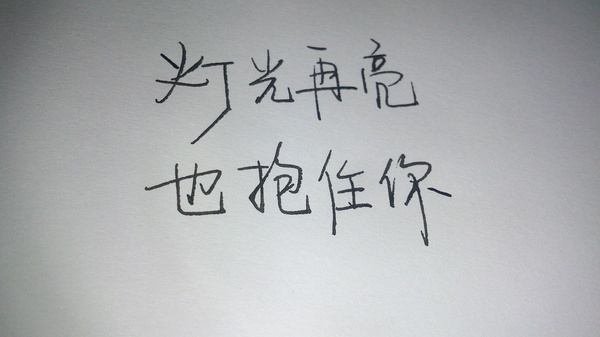 灯光再亮
也抱住你